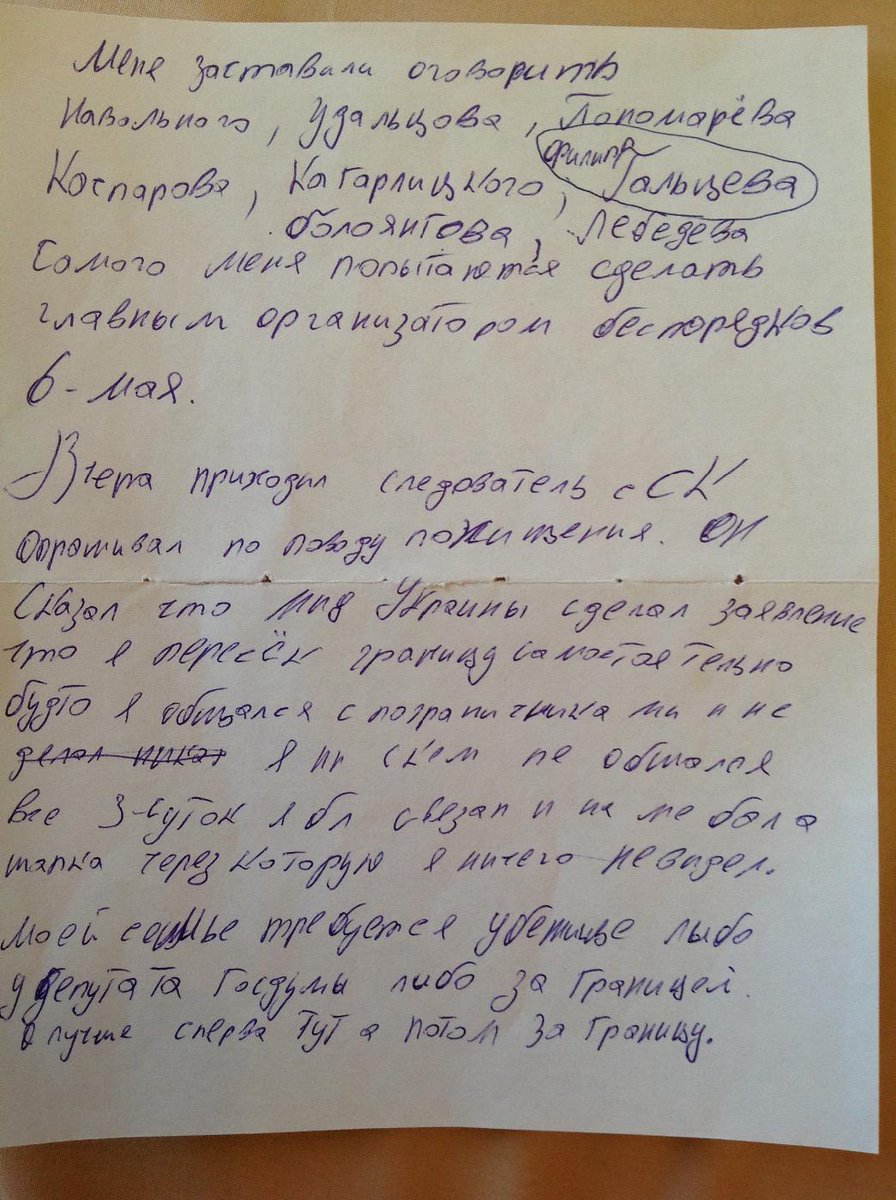 Меня заставили оговорить
Навального, Удальцова, Пономарёва
Филиппа
Каспарова, Кагарлицкого, Гальцева
болоянгова, Лебедева
Самого меня попытаются сделать
главным организатором беспорядков
6-мая.
Вчера приходил следователь с СК
опрашивал по поводу похищения. он
Сказал что МИД Украины сделал заявление
что я пересёк границу самостоятельно
будто я общался с пограничниками и не
делал никак я ни с кем не общался
все 3-суток я бл связан и на мне была
шапка через которую я ничего не видел.
моей семье требуется убежище лыбо
у депутата Госдумы либо за границей.
а лучше сперва тут а потом за границу.